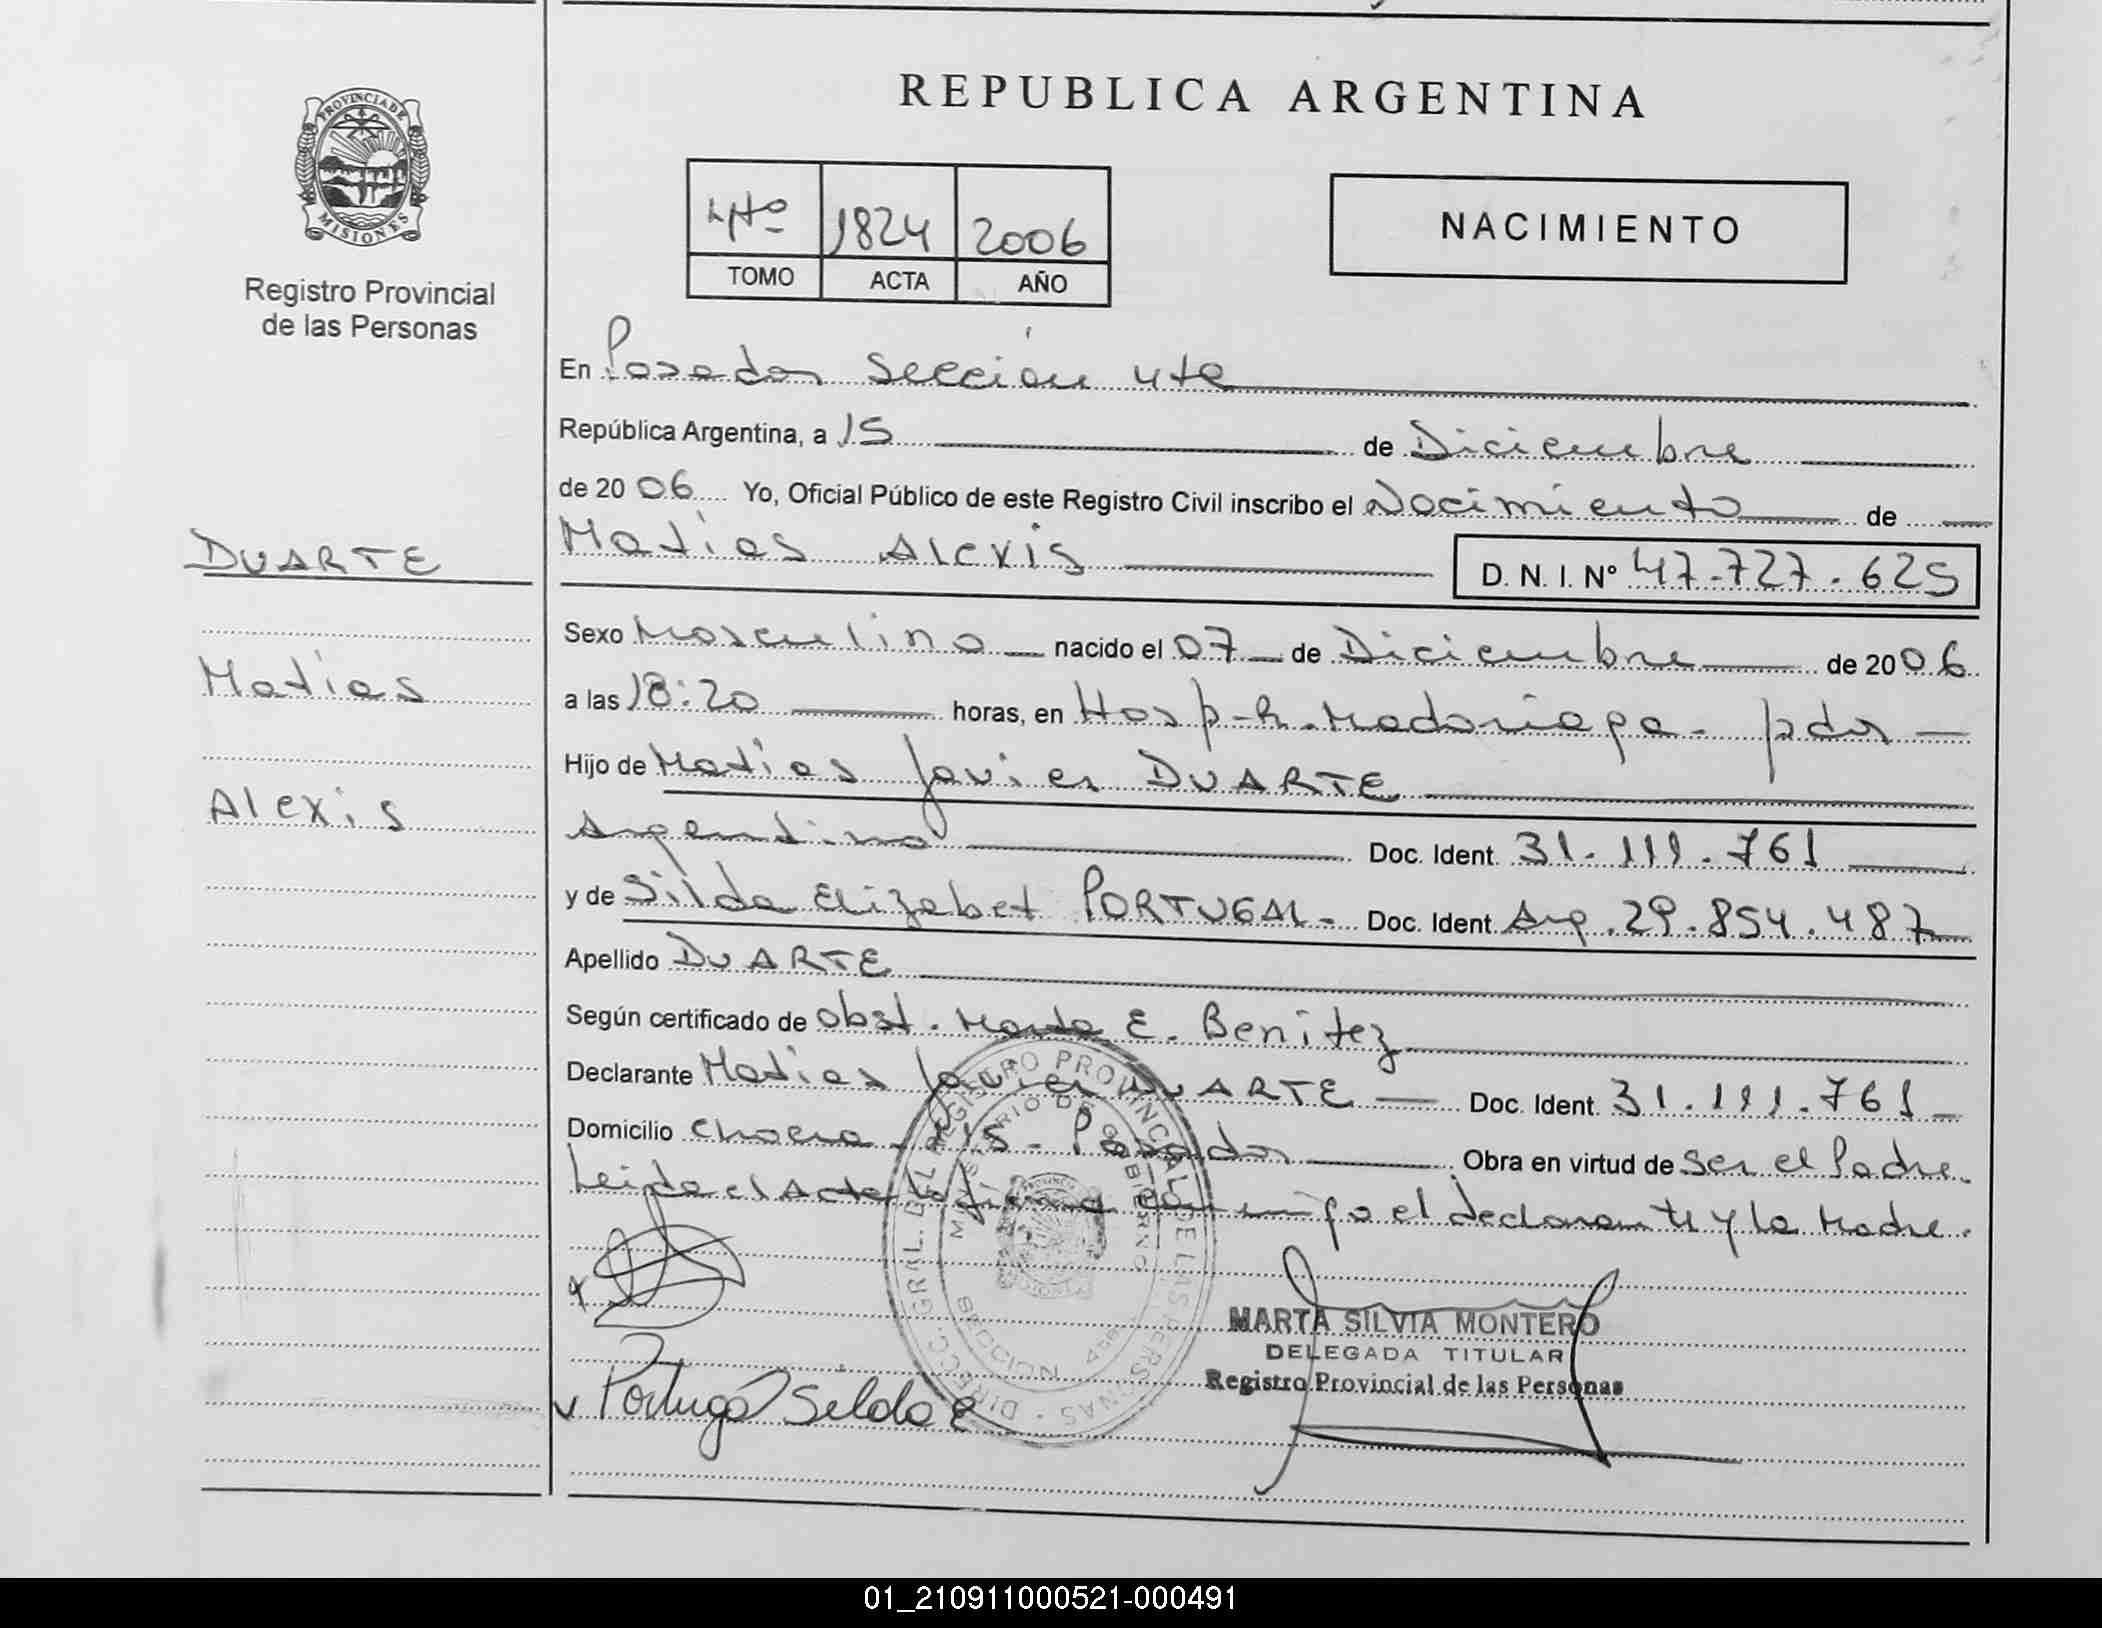 REPUBLICA ARGENTINA
PROVINCIA DE
MISIONES
Registro Provincial
de las Personas
4to 1824 2006
TOMO ACTA AÑO
NACIMIENTO
En Posadas Sección 4ta
República Argentina, a 15 de Diciembre
de 2006 Yo, Oficial Público de este Registro Civil inscribo el Nacimiento de
Matias Alexis D. N. I. Nº 47.727.625
DUARTE
Matias
Alexis
Sexo Masculino nacido el 07 de Diciembre de 2006
a las 18:20 horas, en Hosp. R. Madariaga. pdas
Hijo de Matias Javier DUARTE
Argentino Doc. Ident. 31.111.761
y de Silda Elizabet PORTUGAL. Doc. Ident. Arg. 29.854.487
Apellido DUARTE
Según certificado de Obst. Marta E. Benitez
Declarante Matias Javier DUARTE Doc. Ident. 31.111.761
Domicilio Posadas Obra en virtud de ser el Padre.
Leida el Acta la firma conmigo el declarante y la Madre.
DIRECC. GRAL. DEL REGISTRO PROVINCIAL DE LAS PERSONAS
MINISTERIO DE GOBIERNO
SECCION 4ta
MARTA SILVIA MONTERO
DELEGADA TITULAR
Registro Provincial de las Personas
Portugal Silda E
01_210911000521-000491